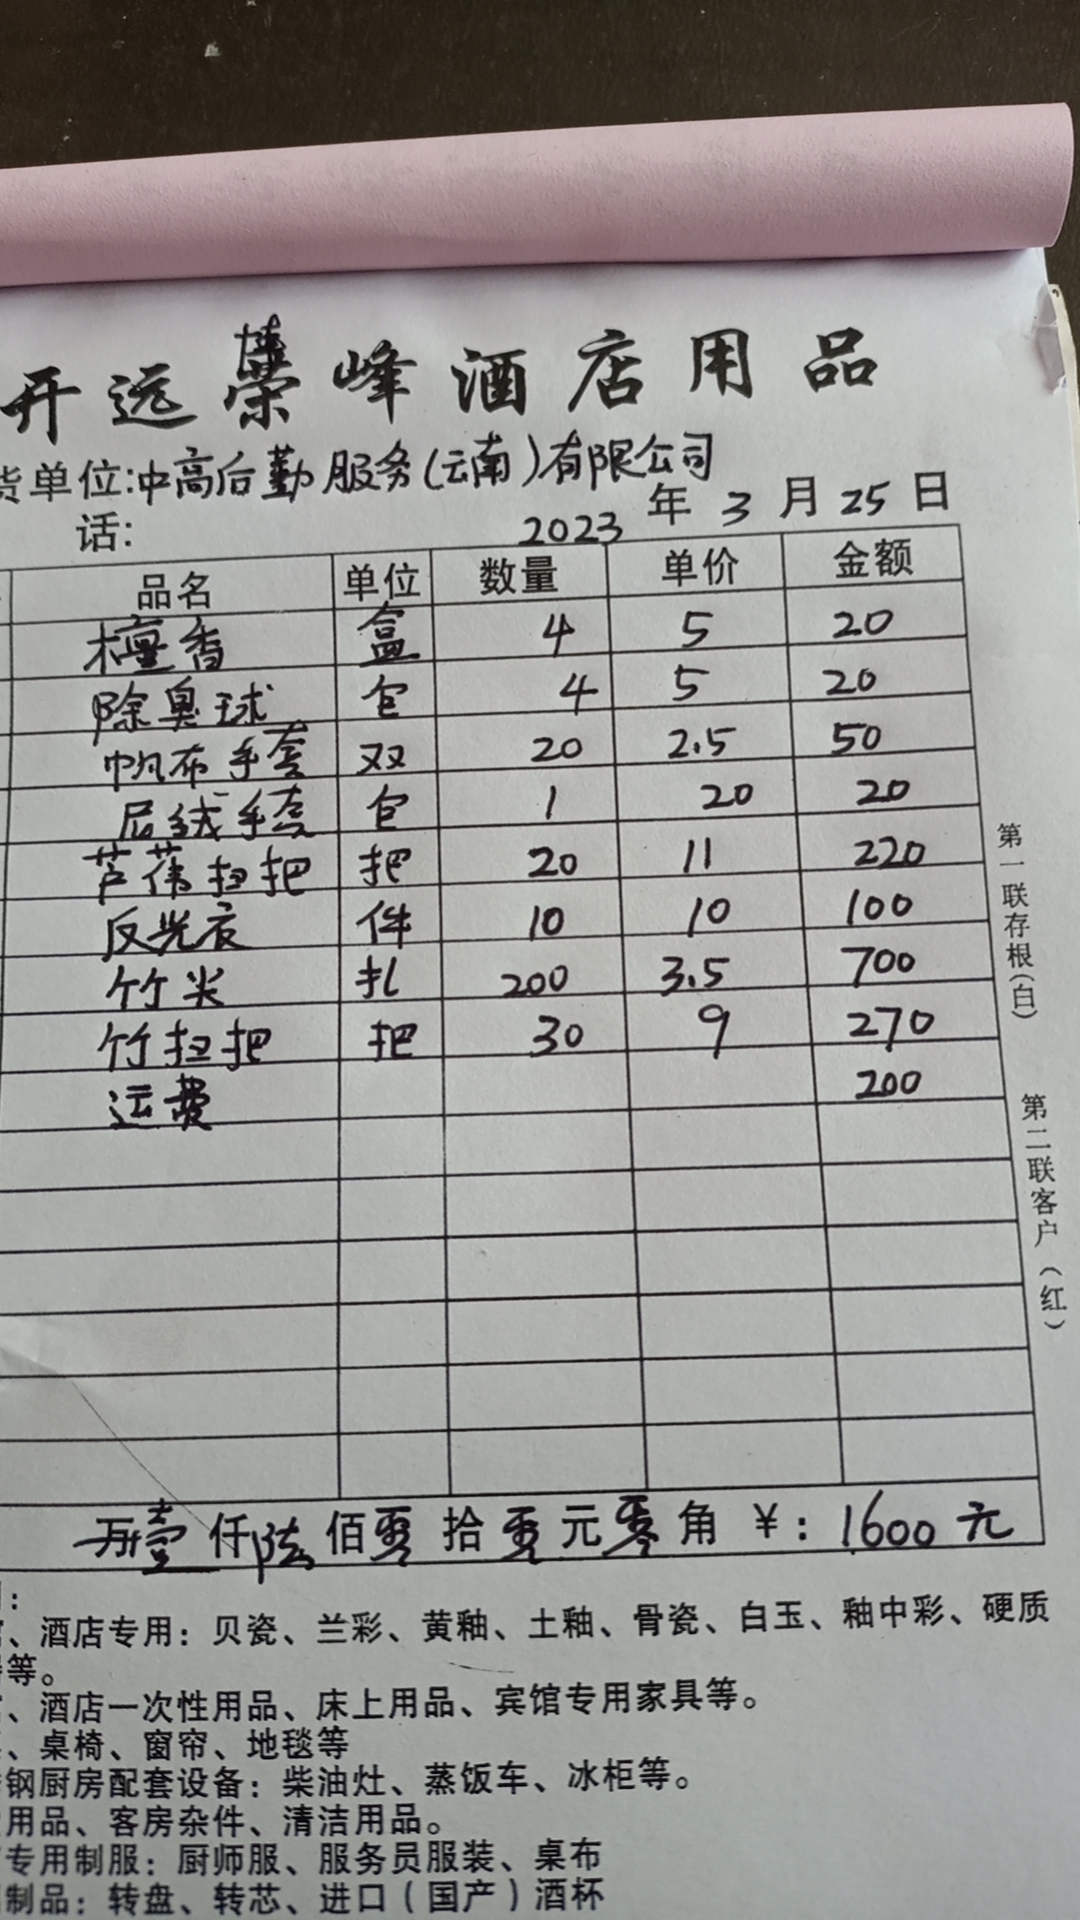 开远荣峰酒店用品
货单位:中高后勤服务(云南)有限公司
话:
2023年3月25日
品名 单位 数量 单价 金额
檀香 盒 4 5 20
除臭球 包 4 5 20
帆布手套 双 20 2.5 50
尼绒手套 包 1 20 20
芦苇扫把 把 20 11 220
反光衣 件 10 10 100
竹尖 扎 200 3.5 700
竹扫把 把 30 9 270
运费 200
第一联存根(白)
第二联客户(红)
万壹仟陆佰零拾零元零角 ¥:1600元
:
、酒店专用:贝瓷、兰彩、黄釉、土釉、骨瓷、白玉、釉中彩、硬质
等。
、酒店一次性用品、床上用品、宾馆专用家具等。
、桌椅、窗帘、地毯等
钢厨房配套设备:柴油灶、蒸饭车、冰柜等。
用品、客房杂件、清洁用品。
专用制服:厨师服、服务员服装、桌布
制品:转盘、转芯、进口(国产)酒杯